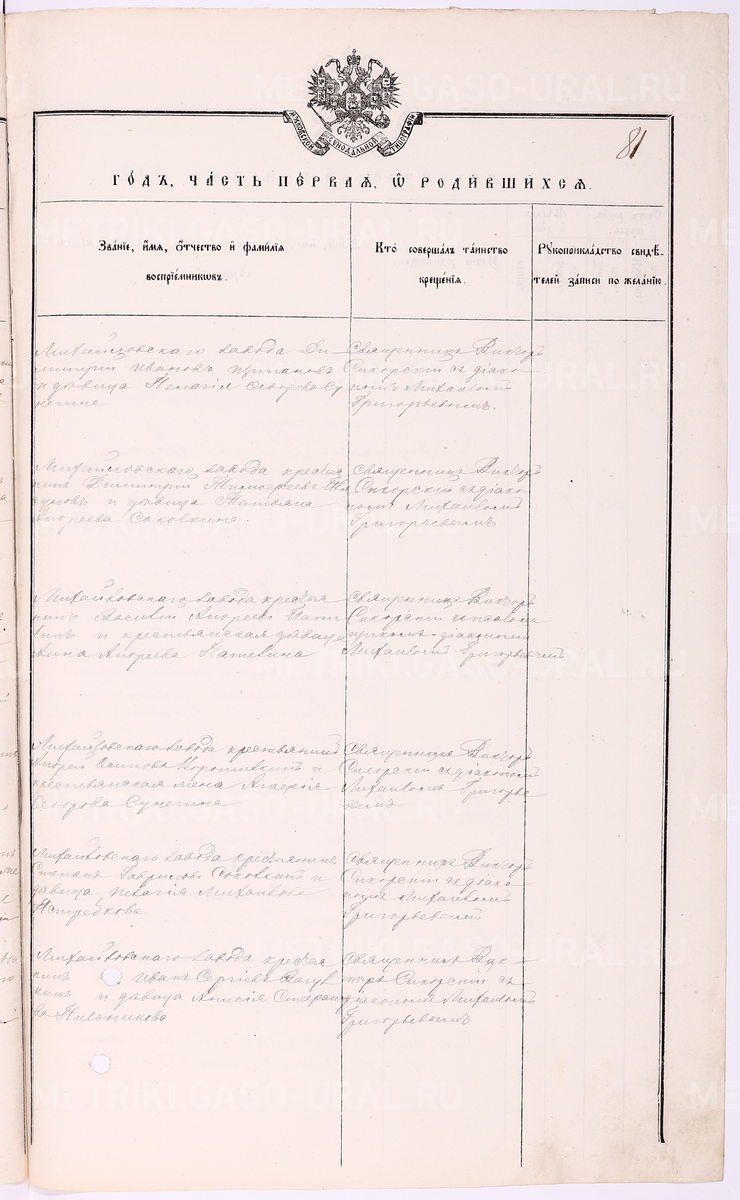 81
МОСКОВСКОЙ СѴНОДАЛЬНОЙ ТИПОГРАФІИ
ГО́ДЪ, ЧА́СТЬ ПЕ́РВАЯ, Ѿ РОДИ́ВШИХСЯ.
Зва́нїе, и҆́мя, ѻ҆́тчество и҆ фами́лїя
воспрїе́мникѡвъ.
Кто̀ соверша́лъ та́инство
креще́нїя.
Рꙋкоприкла́дство свидѣ́-
телей за́писи по жела́нїю.
Михайловскаго завода Ди-
митрій Ивановъ
и дѣвица Пелагія Ѳеодорова Су
негина
Священникъ Викторъ
Сикорскій съ діако-
номъ Михаиломъ
Григорьевымъ.
Михайловскаго завода крестья
нинъ Димитрий Тимоѳеевъ
и дѣвица Татьяна
Андреева Соковкина.
Священникъ Викторъ
Сикорскій съ діако-
номъ Михаиломъ
Григорьевымъ
Михайловскаго завода крестья
нинъ Василій Андреевъ
и крестьянская дѣвица
Анна Андреева
Священникъ Викторъ
Сикорскій
діакономъ
Михаиломъ Григорьевымъ
Михайловскаго завода крестьянинъ
Андрей Осиповъ и
крестьянская жена
Ѳеодорова Сунегина
Священникъ Викторъ
Сикорскій съ діакономъ
Михаиломъ Григорье
вымъ
Михайловскаго завода крестьянинъ
Степанъ Гавриловъ Соковкинъ и
дѣвица Пелагія Михаилова
Ястребкова
Священникъ Викторъ
Сикорскій съ діако
номъ Михаиломъ
Григорьевымъ
Михайловскаго завода крестья
нинъ Иванъ Сергіевъ
и дѣвица Анисія
Священникъ Вик-
торъ Сикорскій съ
діакономъ Михаиломъ
Григорьевымъ
METRIKI.GASO-URAL.RU